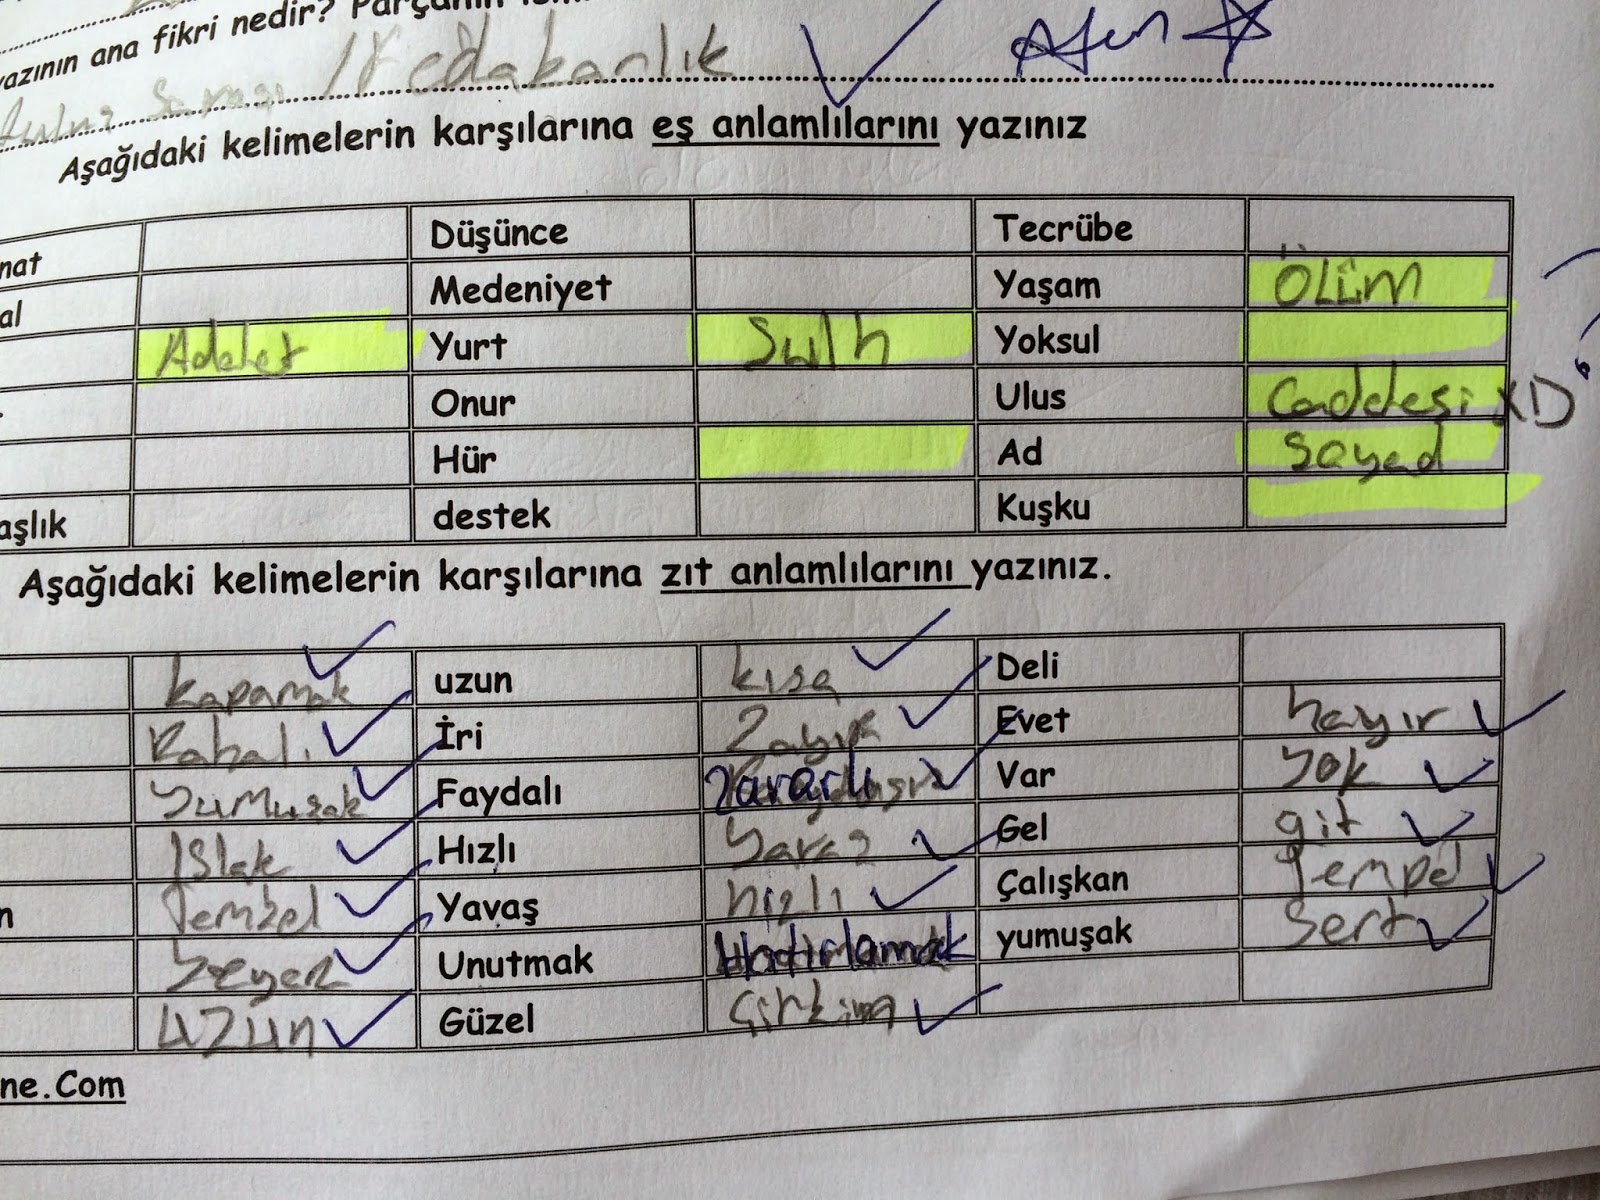 yazının ana fikri nedir? Parçanın
/ Fedakarlık
Aşağıdaki kelimelerin karşılarına eş anlamlılarını yazınız
nat Düşünce Tecrübe
al Medeniyet Yaşam ÖLÜM
Adelet Yurt Sulh Yoksul
Onur Ulus Caddesi XD
Hür Ad Soyad
aşlık destek Kuşku
Aşağıdaki kelimelerin karşılarına zıt anlamlılarını yazınız.
kapamak uzun kısa Deli
Kabalı İri Zayıf Evet hayır
yumuşak Faydalı Zararlı Var yok
Islak Hızlı yavaş Gel git
n Tembel Yavaş hızlı Çalışkan Tempel
Unutmak Hatırlamak yumuşak Sert
uzun Güzel Çirkin
ne.Com